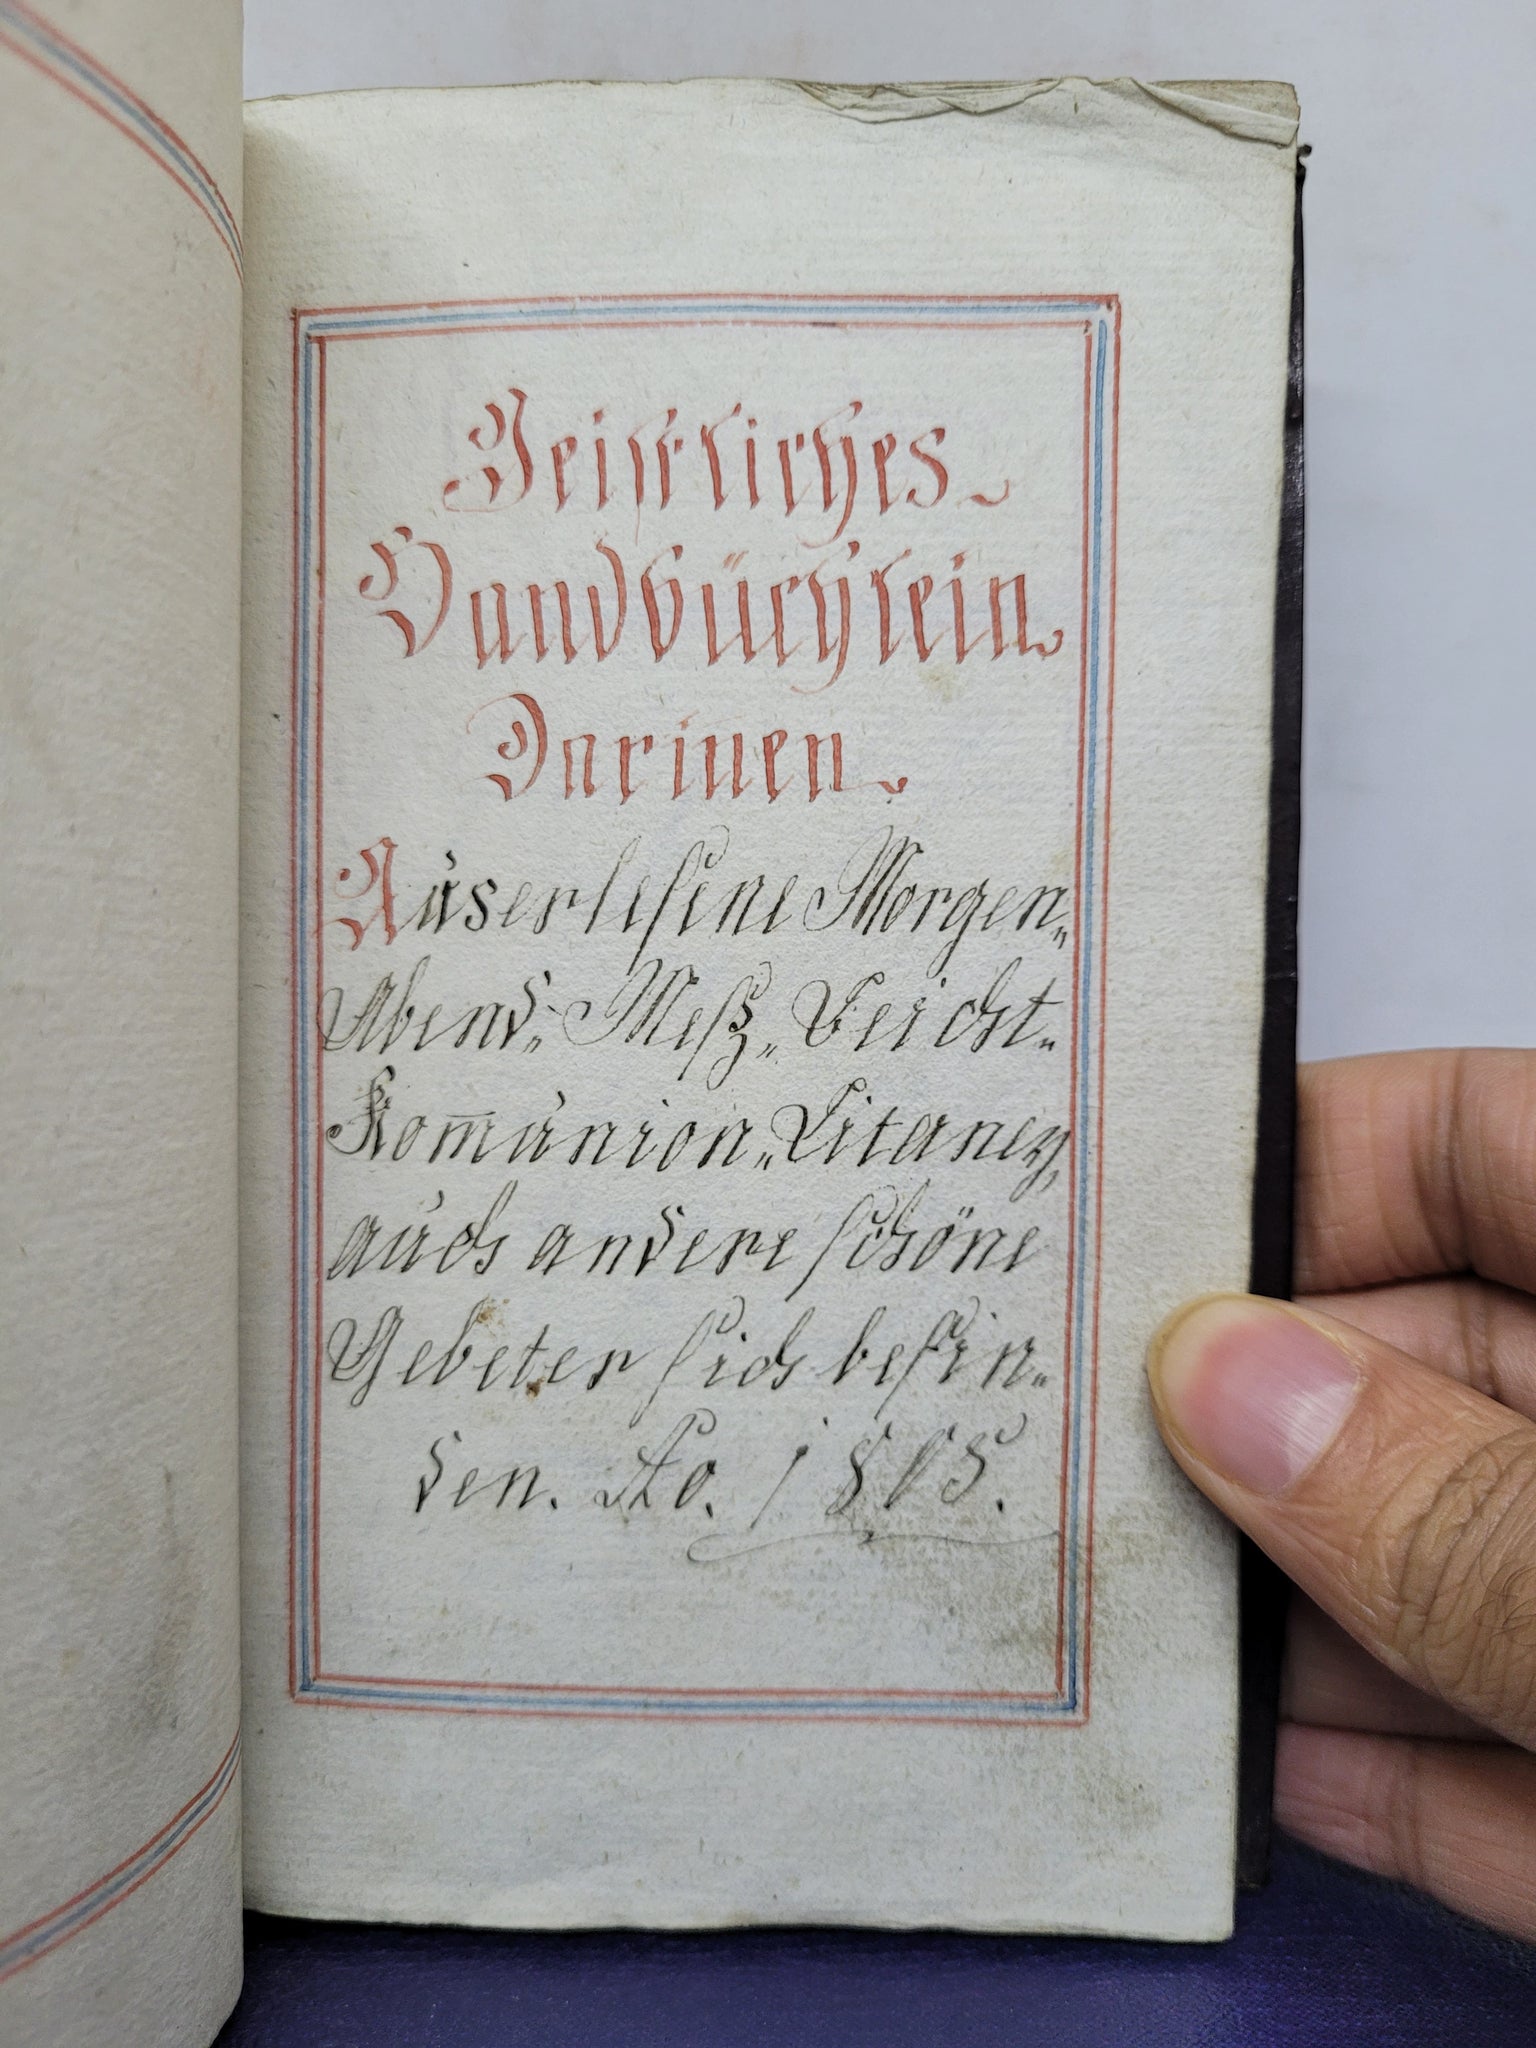 Geistliches
Handbüchlein
Darinen
Auserlesene Morgen„
Abend„ Meß„ Beicht„
Kom̄union„ Litaney,
auch andere schöne
Gebeter sich befin„
den. Ao. 1805.